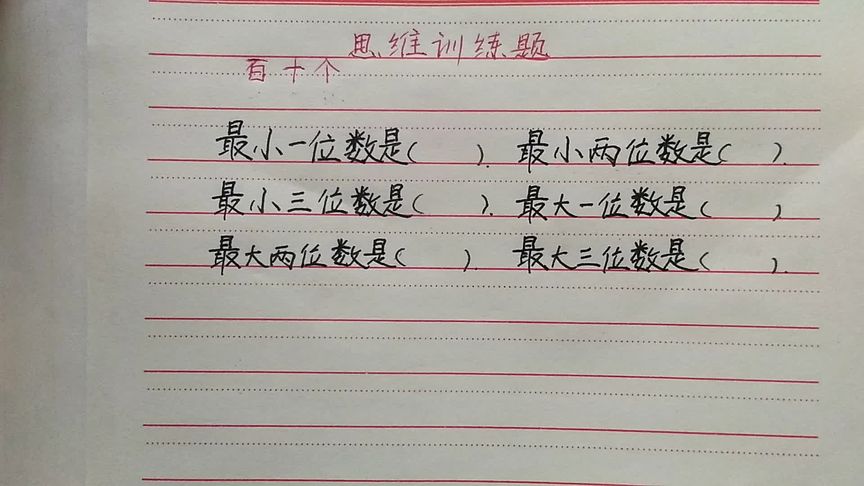 思维训练题
百 十 个
最小一位数是( ). 最小两位数是( ).
最小三位数是( ). 最大一位数是( )
最大两位数是( ). 最大三位数是( ).